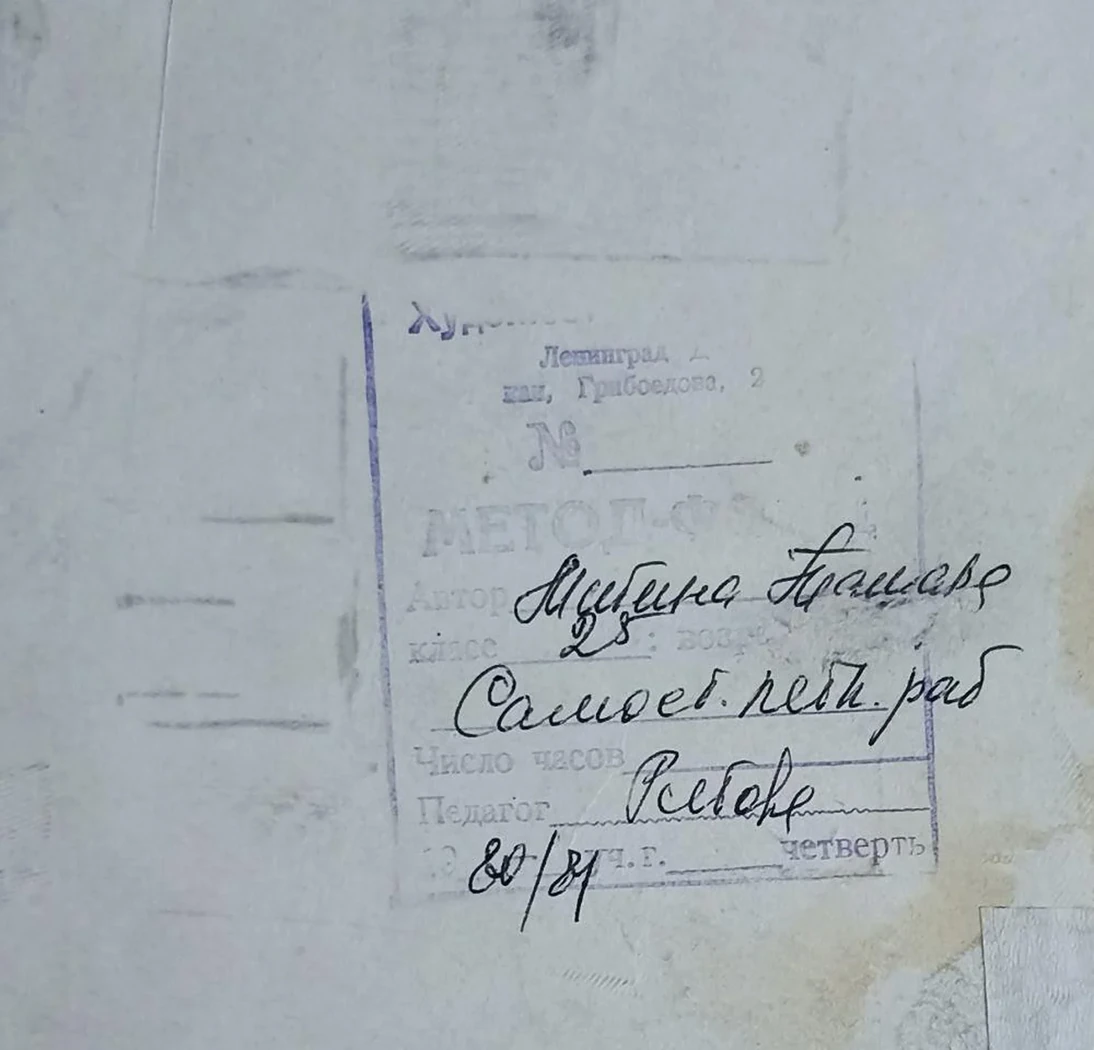 Ленинград
кан, Грибоедова, 2
№
МЕТОД-Ф
Автор Митина
класс 2б : возр
Самост. летн. раб
Число часов
Педагог
19 80/81 уч.г. четверть